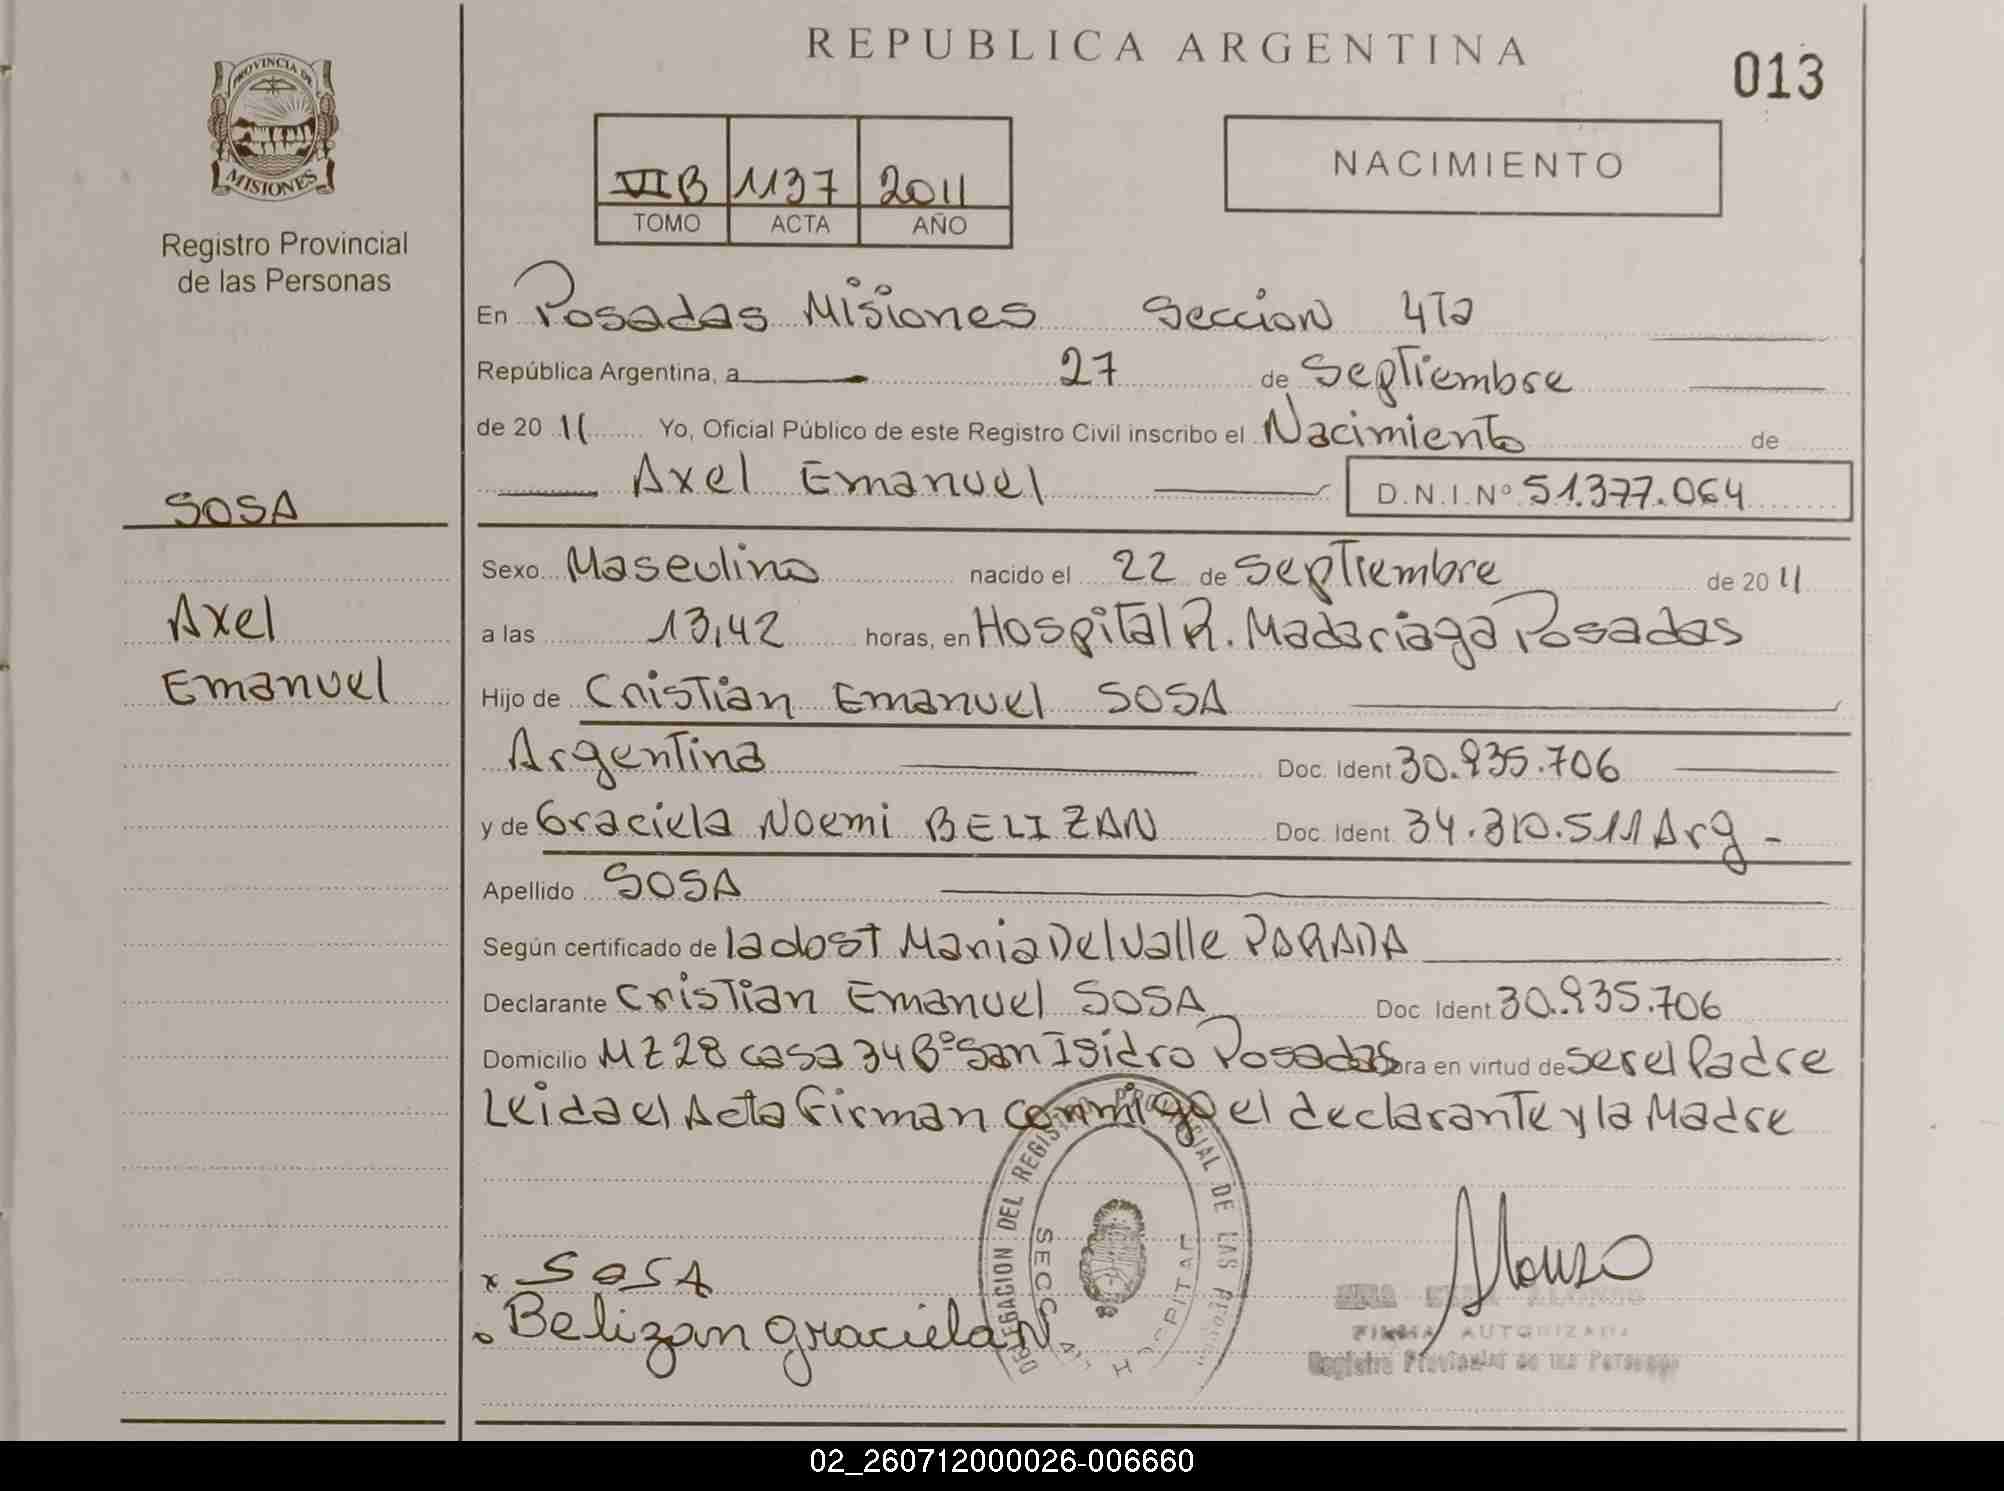 REPUBLICA ARGENTINA
013
PROVINCIA DE
MISIONES
Registro Provincial
de las Personas
VI B 1137 2011
TOMO ACTA AÑO
NACIMIENTO
En Posadas Misiones Seccion 4Ta
República Argentina, a 27 de Septiembre
de 20 11 Yo, Oficial Público de este Registro Civil inscribo el Nacimiento de
Axel Emanuel D.N.I.Nº 51.377.064
SOSA
Axel
Emanuel
Sexo Masculino nacido el 22 de Septiembre de 20 11
a las 13,42 horas, en Hospital R. Madariaga Posadas
Hijo de Cristian Emanuel SOSA
Argentina Doc. Ident 30.935.706
y de Graciela Noemi BELIZAN Doc. Ident. 34.310.511 Arg -
Apellido SOSA
Según certificado de la dost Maria Del Valle PARADA
Declarante Cristian Emanuel SOSA Doc. Ident 30.935.706
Domicilio MZ 28 casa 34 Bº San Isidro Posadas en virtud de ser el Padre
Leida el Acta Firman conmigo el declarante y la Madre
DELEGACION DEL REGISTRO PROVINCIAL DE LAS PERSONAS
SECC 4ta HOSPITAL
x SOSA
Belizan Graciela N
Alonso
ALONSO
FIRMA AUTORIZADA
Registro Provincial de las Personas
02_260712000026-006660